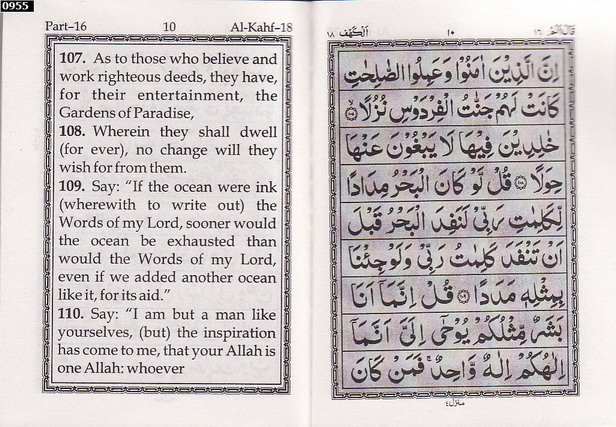 0955
Part-16 10 Al-Kahf-18
107. As to those who believe and
work righteous deeds, they have,
for their entertainment, the
Gardens of Paradise,
108. Wherein they shall dwell
(for ever), no change will they
wish for from them.
109. Say: “If the ocean were ink
(wherewith to write out) the
Words of my Lord, sooner would
the ocean be exhausted than
would the Words of my Lord,
even if we added another ocean
like it, for its aid.”
110. Say: “I am but a man like
yourselves, (but) the inspiration
has come to me, that your Allah is
one Allah: whoever
قال الم ١٦ ١٠ الكهف ١٨
اِنَّ الَّذِيْنَ اٰمَنُوْا وَعَمِلُوا الصّٰلِحٰتِ
كَانَتْ لَهُمْ جَنّٰتُ الْفِرْدَوْسِ نُزُلًا ۙ‏﴿١٠٧﴾
خٰلِدِيْنَ فِيْهَا لَا يَبْغُوْنَ عَنْهَا
حِوَلًا ﴿١٠٨﴾ قُلْ لَّوْ كَانَ الْبَحْرُ مِدَادًا
لِّكَلِمٰتِ رَبِّيْ لَنَفِدَ الْبَحْرُ قَبْلَ
اَنْ تَنْفَدَ كَلِمٰتُ رَبِّيْ وَلَوْ جِئْنَا
بِمِثْلِهٖ مَدَدًا ﴿١٠٩﴾ قُلْ اِنَّمَآ اَنَا
بَشَرٌ مِّثْلُكُمْ يُوْحٰٓى اِلَيَّ اَنَّمَآ
اِلٰهُكُمْ اِلٰهٌ وَّاحِدٌ ۚ فَمَنْ كَانَ
منزل ٤